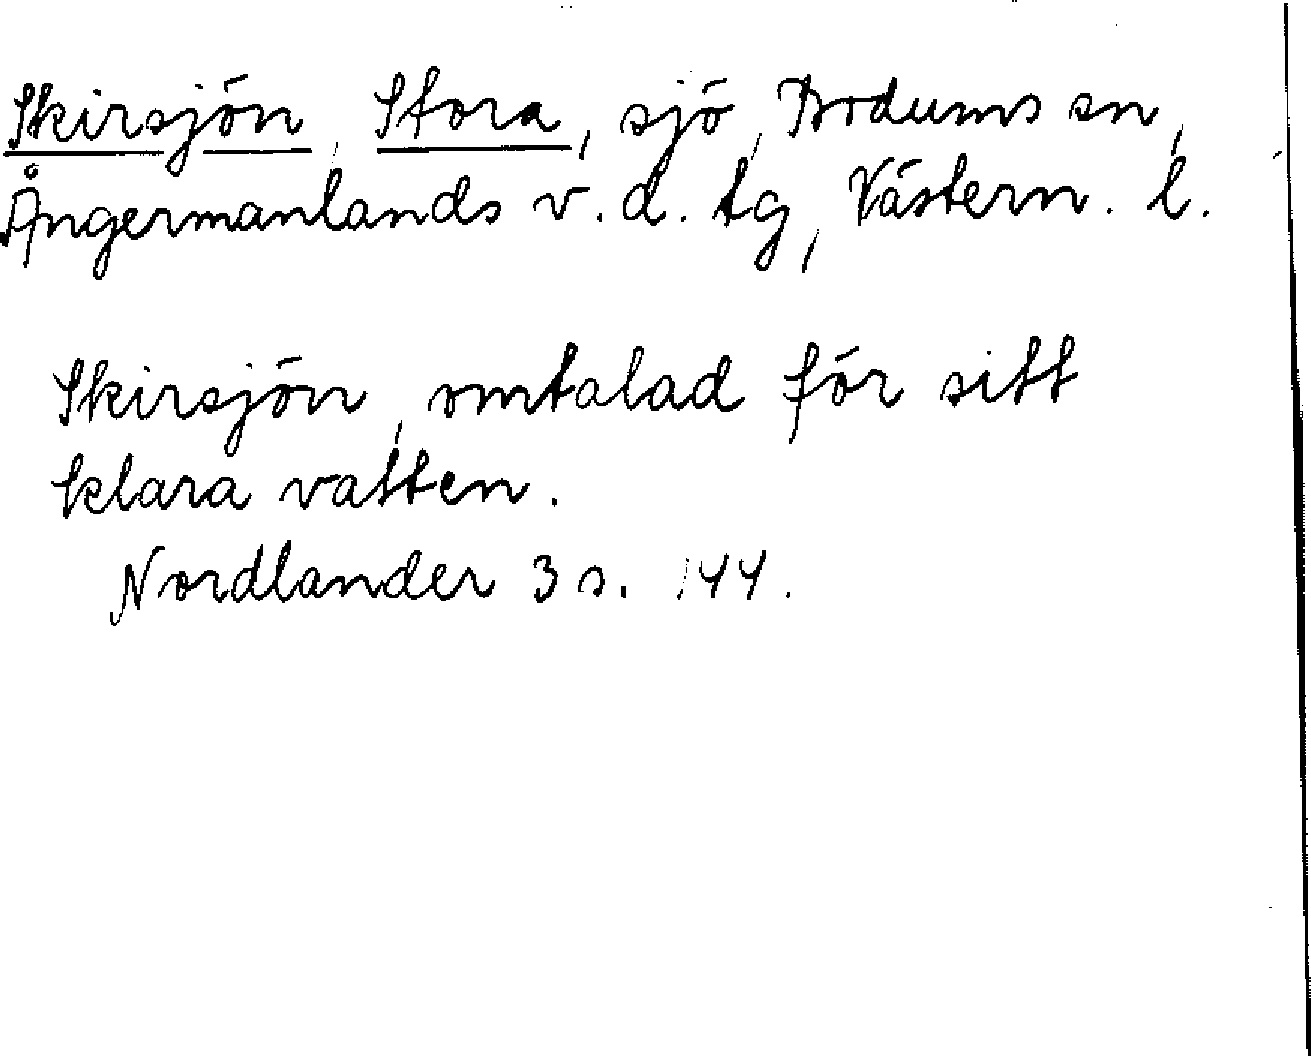 Skirsjön, Stora, sjö, Bodums sn,
Ångermanlands v. d. tg, Västern. l.
Skirsjön, omtalad för sitt
klara vatten.
Nordlander 3 s. 144.